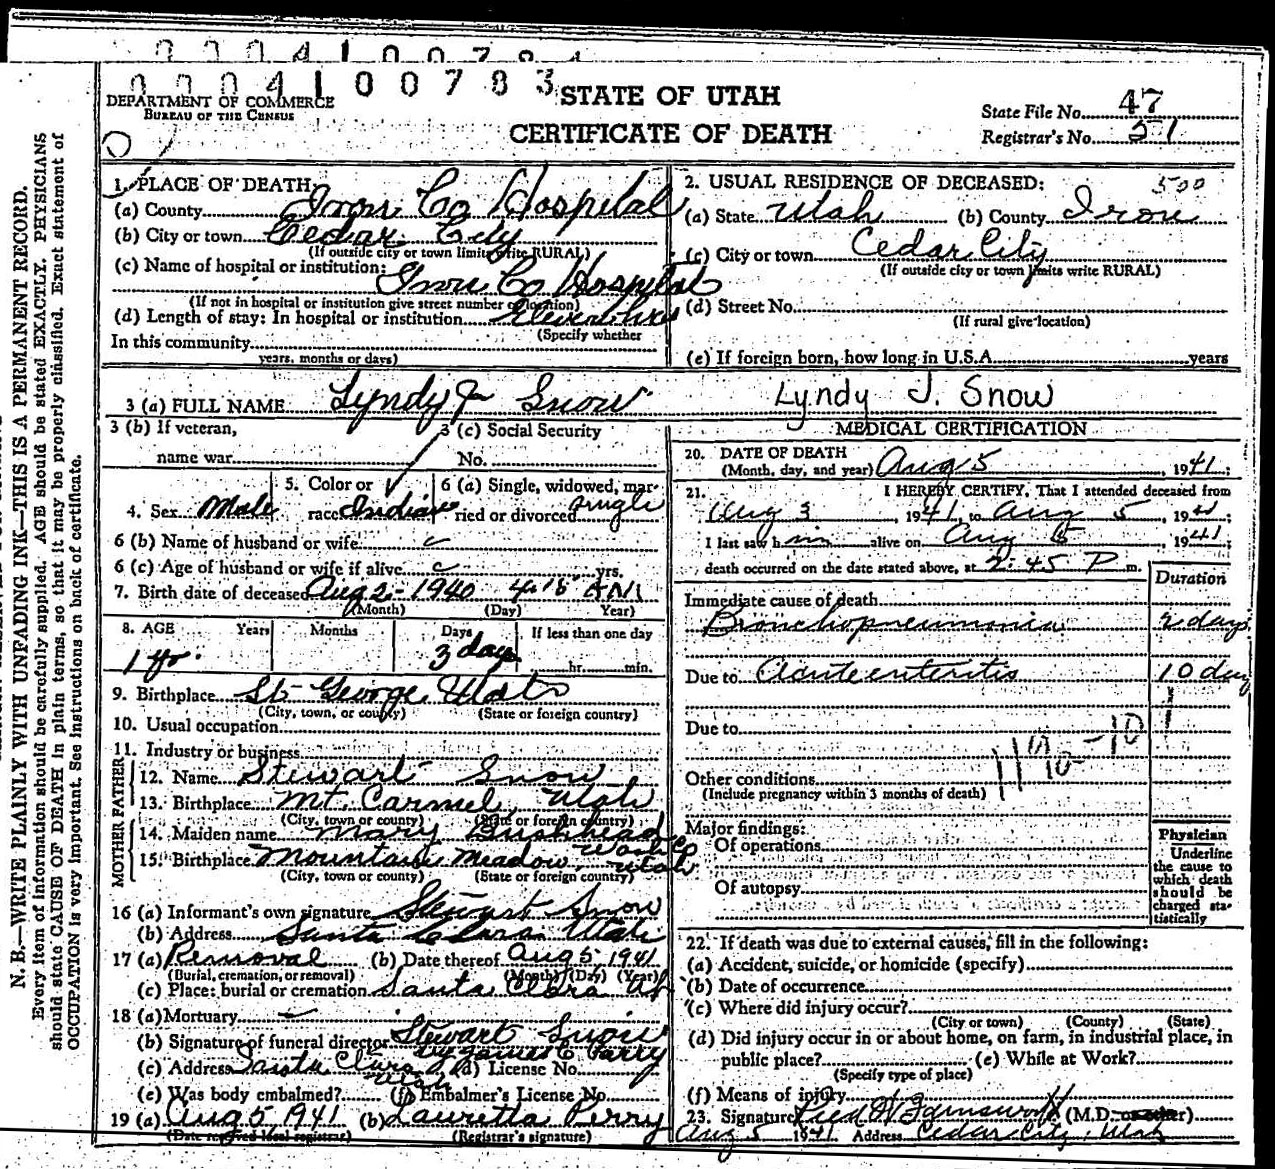 0004100783
DEPARTMENT OF COMMERCE
BUREAU OF THE CENSUS
STATE OF UTAH
CERTIFICATE OF DEATH
State File No. 47
Registrar's No. 51
1. PLACE OF DEATH
(a) County Iron Co Hospital
(b) City or town Cedar City
(If outside city or town limits write RURAL)
(c) Name of hospital or institution:
Iron Co Hospital
(If not in hospital or institution give street number or location)
(d) Length of stay: In hospital or institution Eleven hrs
(Specify whether
In this community
years, months or days)
2. USUAL RESIDENCE OF DECEASED: 500
(a) State Utah (b) County Iron
(c) City or town Cedar City
(If outside city or town limits write RURAL)
(d) Street No.
(If rural give location)
(e) If foreign born, how long in U.S.A. years
3 (a) FULL NAME Lyndy J Snow Lyndy J. Snow
3 (b) If veteran,
name war
3 (c) Social Security
No.
4. Sex Male
5. Color or
race Indian
6 (a) Single, widowed, mar-
ried or divorced single
6 (b) Name of husband or wife
6 (c) Age of husband or wife if alive yrs.
7. Birth date of deceased Aug 2 - 1940 4:15 AM
(Month) (Day) Year)
8. AGE Years Months Days If less than one day
1 yr. 3 days hr. min.
9. Birthplace St George Utah
(City, town, or county) (State or foreign country)
10. Usual occupation
11. Industry or business
FATHER
12. Name Stewart Snow
13. Birthplace Mt. Carmel, Utah
(City, town or county) (State or foreign country)
MOTHER
14. Maiden name Mary Bushhead
15. Birthplace Mountain Meadow Wash Co Utah
(City, town or county) (State or foreign country)
16 (a) Informant's own signature Stewart Snow
(b) Address Santa Clara Utah
17 (a) Removal (b) Date thereof Aug 5, 1941
(Burial, cremation, or removal) (Month) (Day) (Year)
(c) Place: burial or cremation Santa Clara Ut
18 (a) Mortuary
(b) Signature of funeral director Stewart Snow
by James C Parry
(c) Address Santa Clara Utah (d) License No.
(e) Was body embalmed? (f) Embalmer's License No.
19 (a) Aug 5 1941 (b) Lauretta Perry
(Date received local registrar) (Registrar's signature)
MEDICAL CERTIFICATION
20. DATE OF DEATH
(Month, day, and year) Aug 5, 1941;
21. I HEREBY CERTIFY, That I attended deceased from
Aug 3, 1941 to Aug 5, 1941
I last saw him alive on Aug 5, 1941,
death occurred on the date stated above, at 2:45 P m.
Duration
Immediate cause of death
Bronchopneumonia 2 days
Due to Acute enteritis 10 day
Due to
Other conditions
(Include pregnancy within 3 months of death)
Major findings:
Of operations
Of autopsy
Physician
Underline
the cause to
which death
should be
charged sta-
tistically
22. If death was due to external causes, fill in the following:
(a) Accident, suicide, or homicide (specify)
(b) Date of occurrence
(c) Where did injury occur?
(City or town) (County) (State)
(d) Did injury occur in or about home, on farm, in industrial place, in
public place? (e) While at Work?
(Specify type of place)
(f) Means of injury
23. Signature (M.D. or other)
Aug 5 1941 Address Cedar City, Utah
N. B.—WRITE PLAINLY WITH UNFADING INK—THIS IS A PERMANENT RECORD.
Every item of information should be carefully supplied. AGE should be stated EXACTLY. PHYSICIANS
should state CAUSE OF DEATH in plain terms, so that it may be properly classified. Exact statement of
OCCUPATION is very important. See instructions on back of certificate.